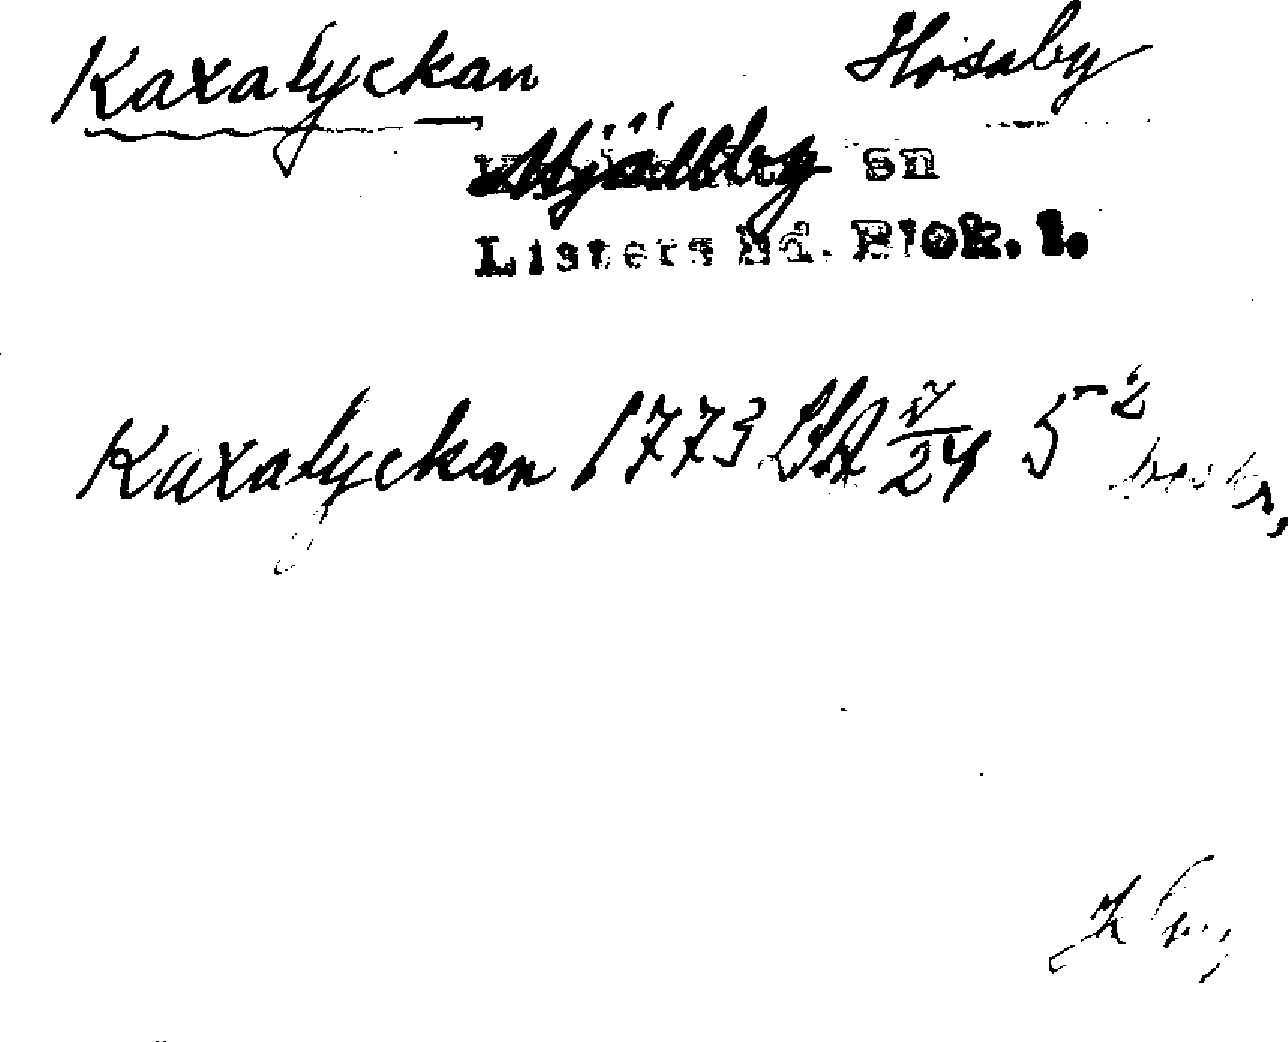 Kaxalyckan Hosaby
Mjällby sn
Listers hd. Blek. l.
Kaxalyckan 1773 LSA 7/24 5-2 beskr,